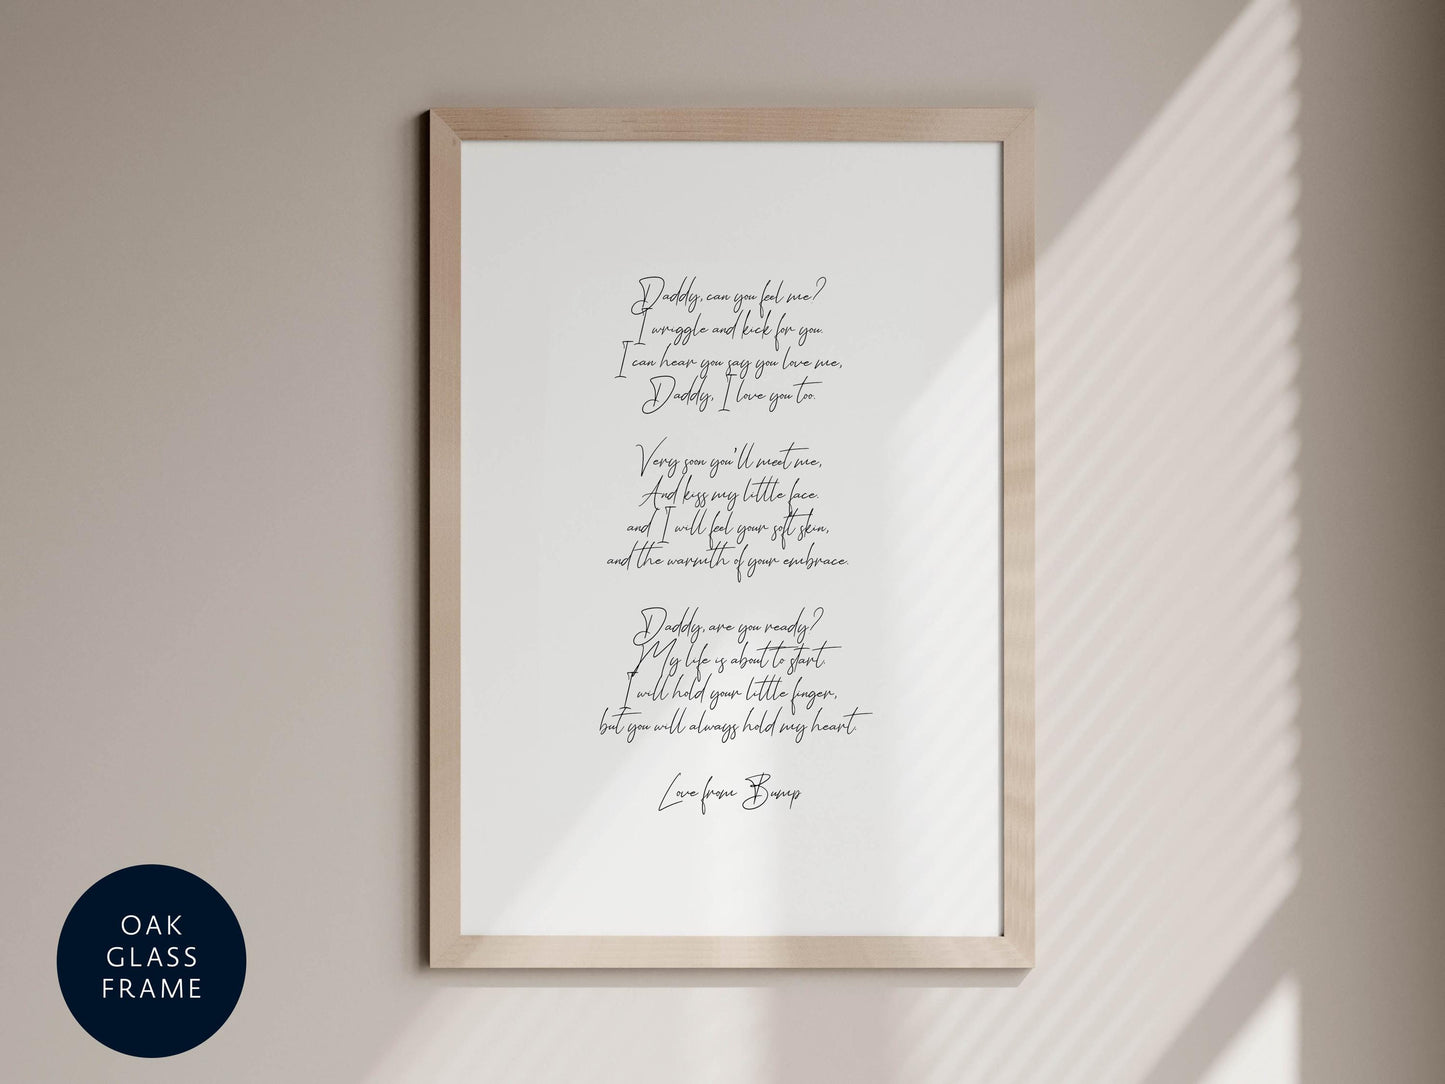 Daddy, can you feel me?
I wriggle and kick for you.
I can hear you say you love me,
Daddy, I love you too.
Very soon you'll meet me,
And kiss my little face.
and I will feel your soft skin,
and the warmth of your embrace.
Daddy, are you ready?
My life is about to start.
I will hold your little finger,
but you will always hold my heart.
Love from Bump
OAK
GLASS
FRAME